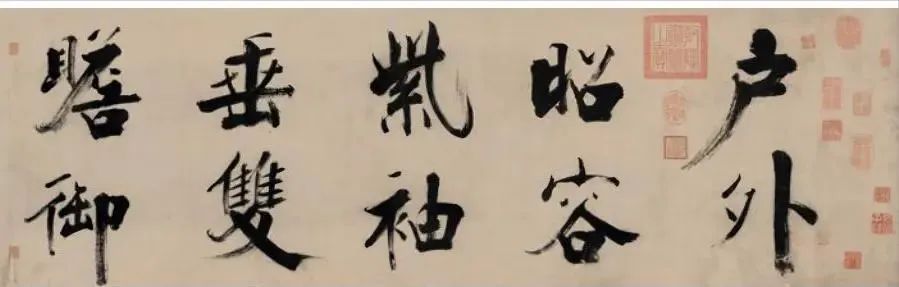 户外
昭容
紫袖
垂雙
瞻御